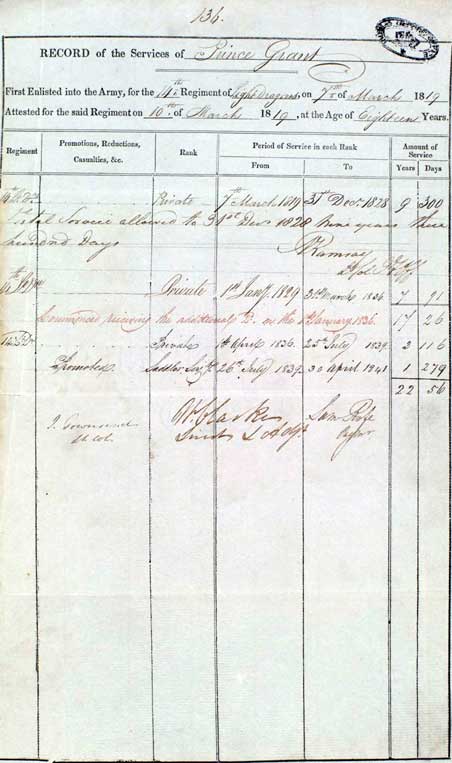 136.
RECORD of the Services of Prince Grant
First Enlisted into the Army, for the 14th Regiment of Light Dragoons, on 7th of March 1819
Attested for the said Regiment on 10th of March 1819, at the Age of Eighteen Years.
Regiment Promotions, Reductions, Casualties, &c. Rank Period of Service in each Rank Amount of Service
From To Years Days
Private 7th March 1819 31st Decr 1828 9 300
Total Service allowed to 31st Decr 1828 Nine years three
hundred Days
Ramsay
Private 1st Jany 1829 31st March 1836 7 91
Commenced receiving the additional on the January 1836. 17 26
14 Private 1st April 1836 25th July 1839 3 116
Promoted Saddler Serjt 26th July 1839 30 April 1841 1 279
22 56
J. Townsend Clarke Sam
Lt Col. Lieut